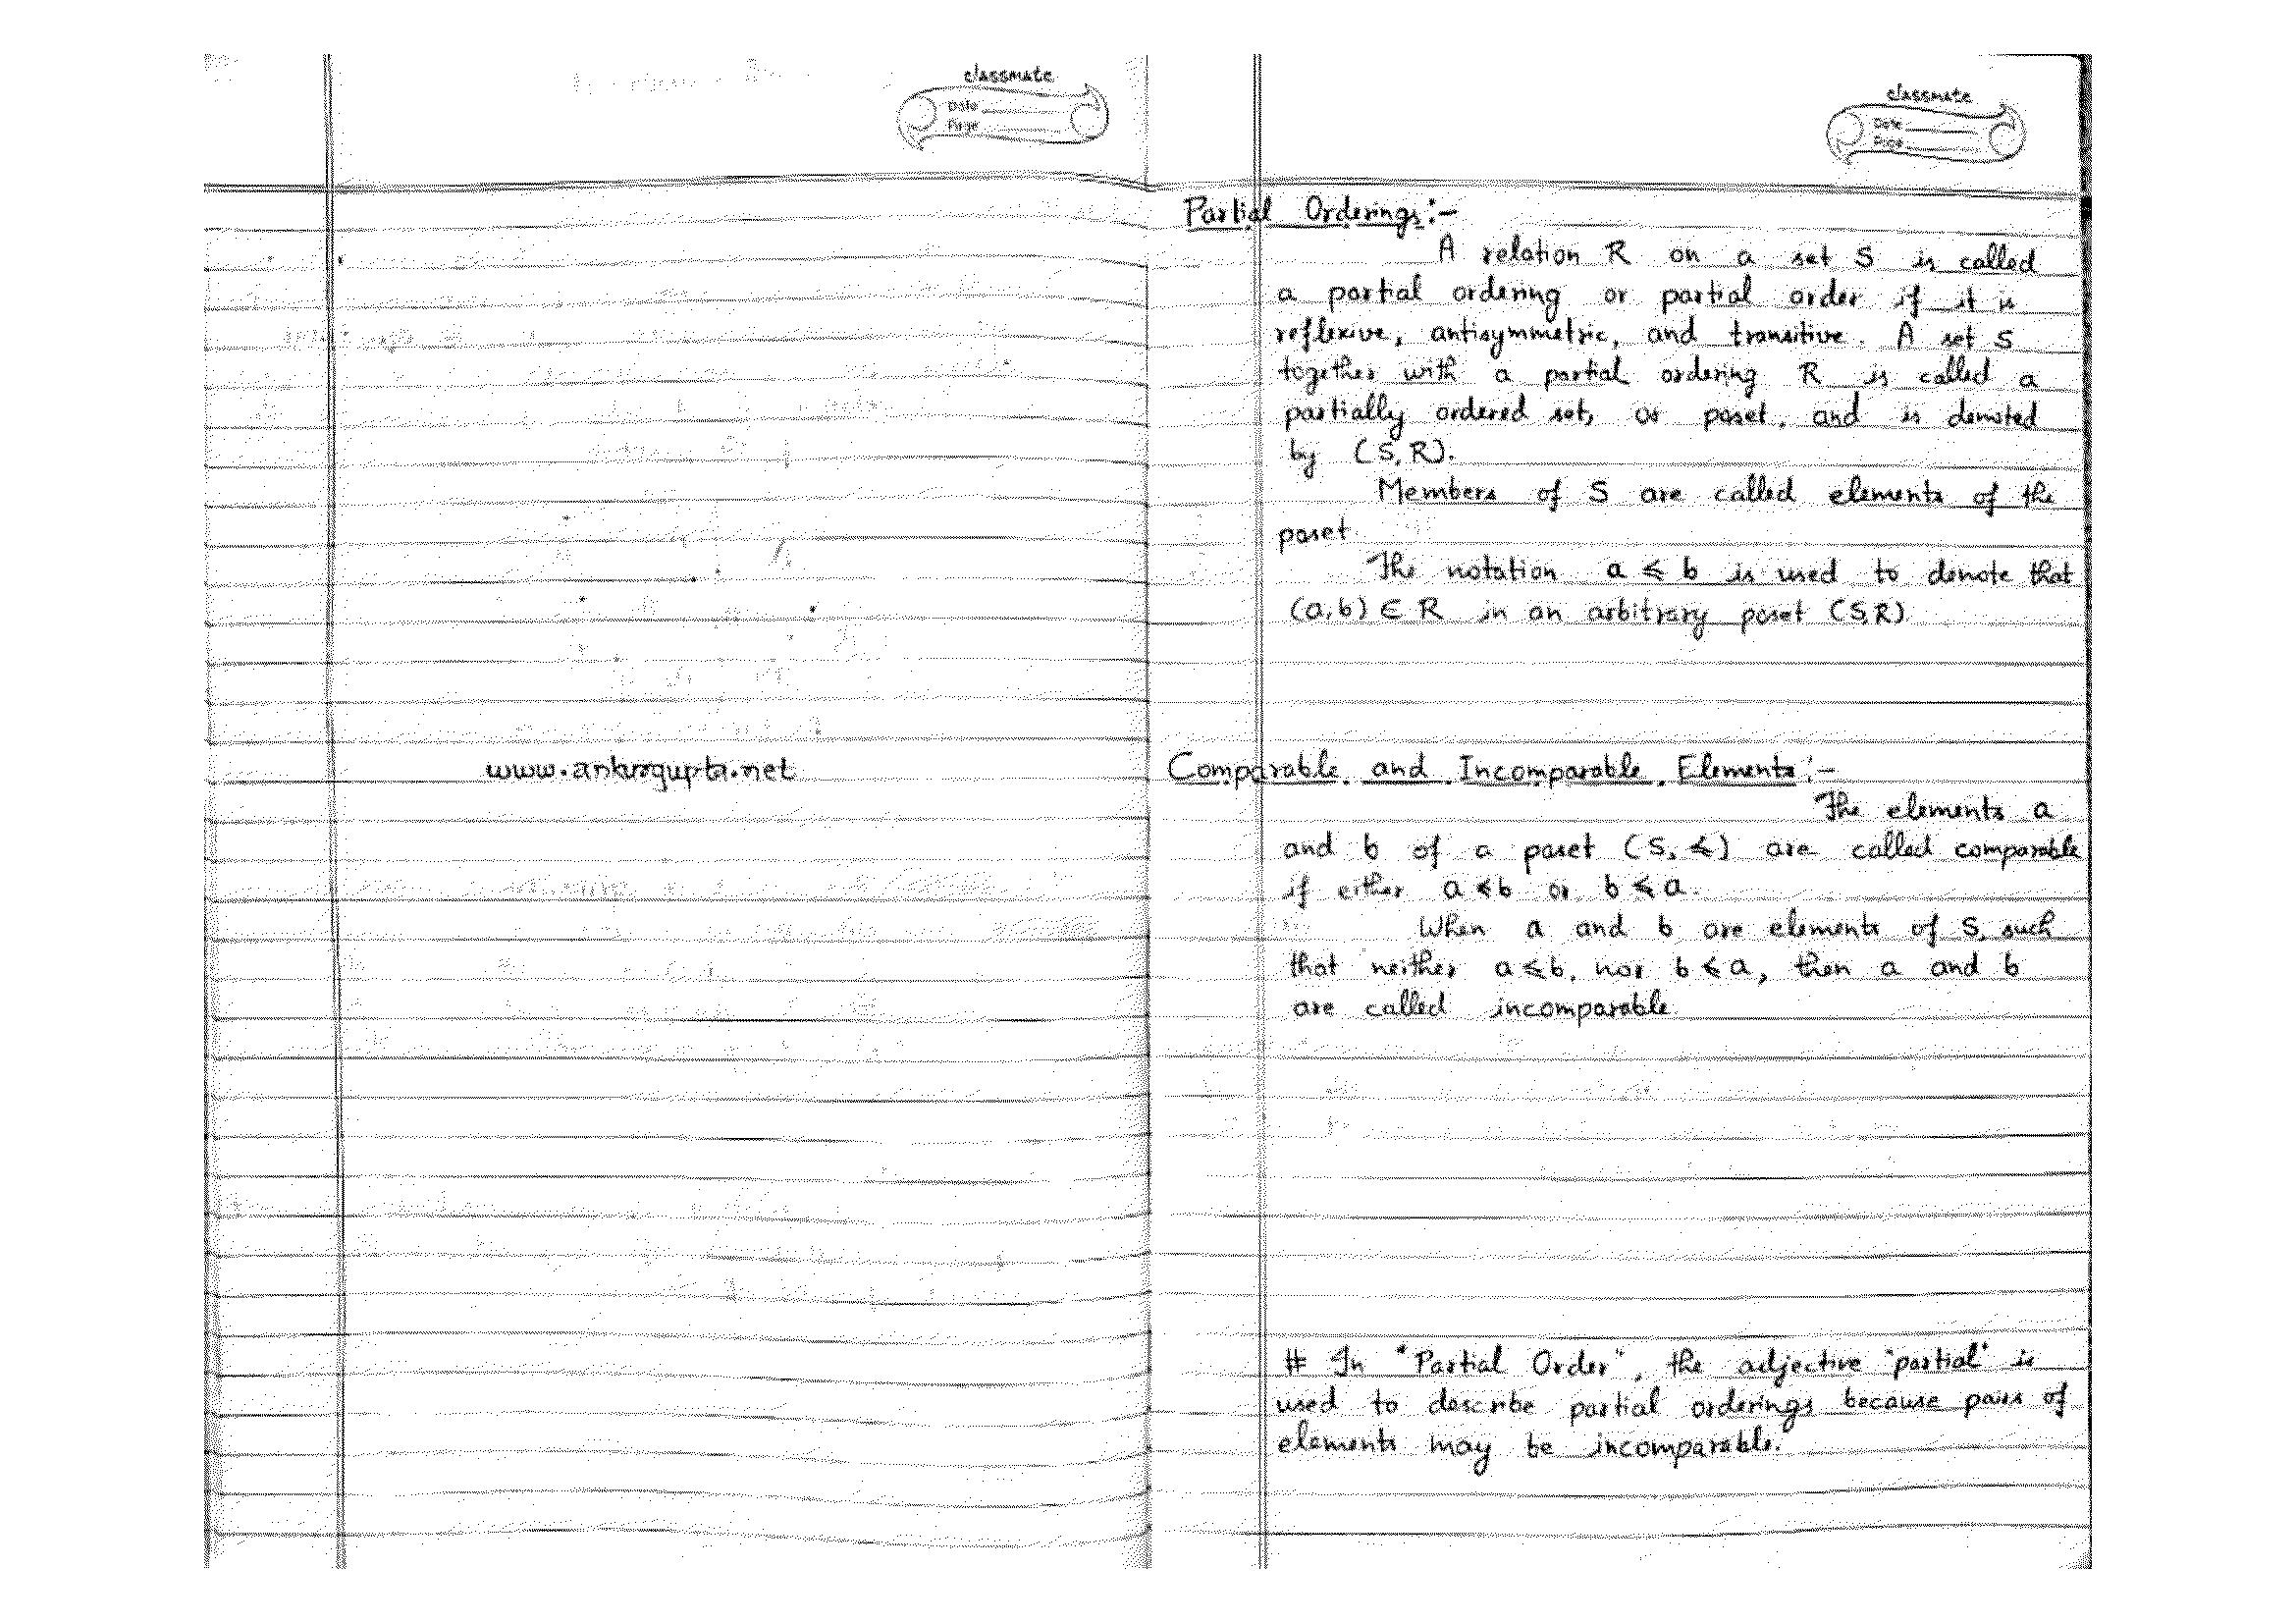 classmate
Date
Page
www.ankurgupta.net
classmate
Date
Page
Partial Orderings:-
A relation R on a set S is called
a partial ordering or partial order if it is
reflexive, antisymmetric, and transitive. A set S
together with a partial ordering R is called a
partially ordered set, or poset, and is denoted
by (S,R).
Members of S are called elements of the
poset.
The notation a ≼ b is used to denote that
(a,b) ∈ R in an arbitrary poset (S,R)
Comparable and Incomparable Elements:-
The elements a
and b of a poset (S, ≼) are called comparable
if either a ≼ b or b ≼ a.
When a and b are elements of S, such
that neither a ≼ b, nor b ≼ a, then a and b
are called incomparable.
# In "Partial Order", the adjective "partial" is
used to describe partial orderings because pairs of
elements may be incomparable.